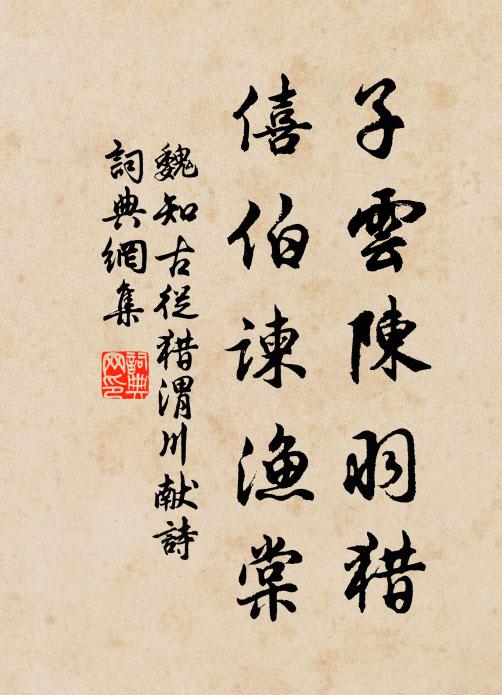 子雲陳羽猎
僖伯諫漁棠
魏知古從猎渭川献詩
詞典網集
詞典网印